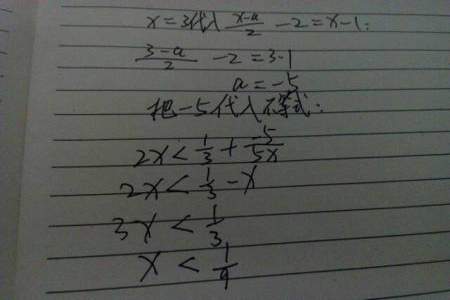 x=3代入 (x-a)/2 -2=x-1:
(3-a)/2 -2=3-1
a=-5
把-5代入不等式:
2x< 1/3 + -5/5x
2x< 1/3 -x
3x < 1/3
x < 1/9